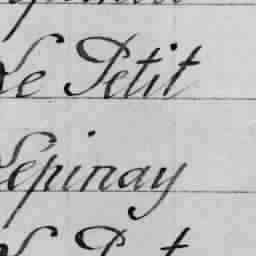 Le Petit
Lepinay